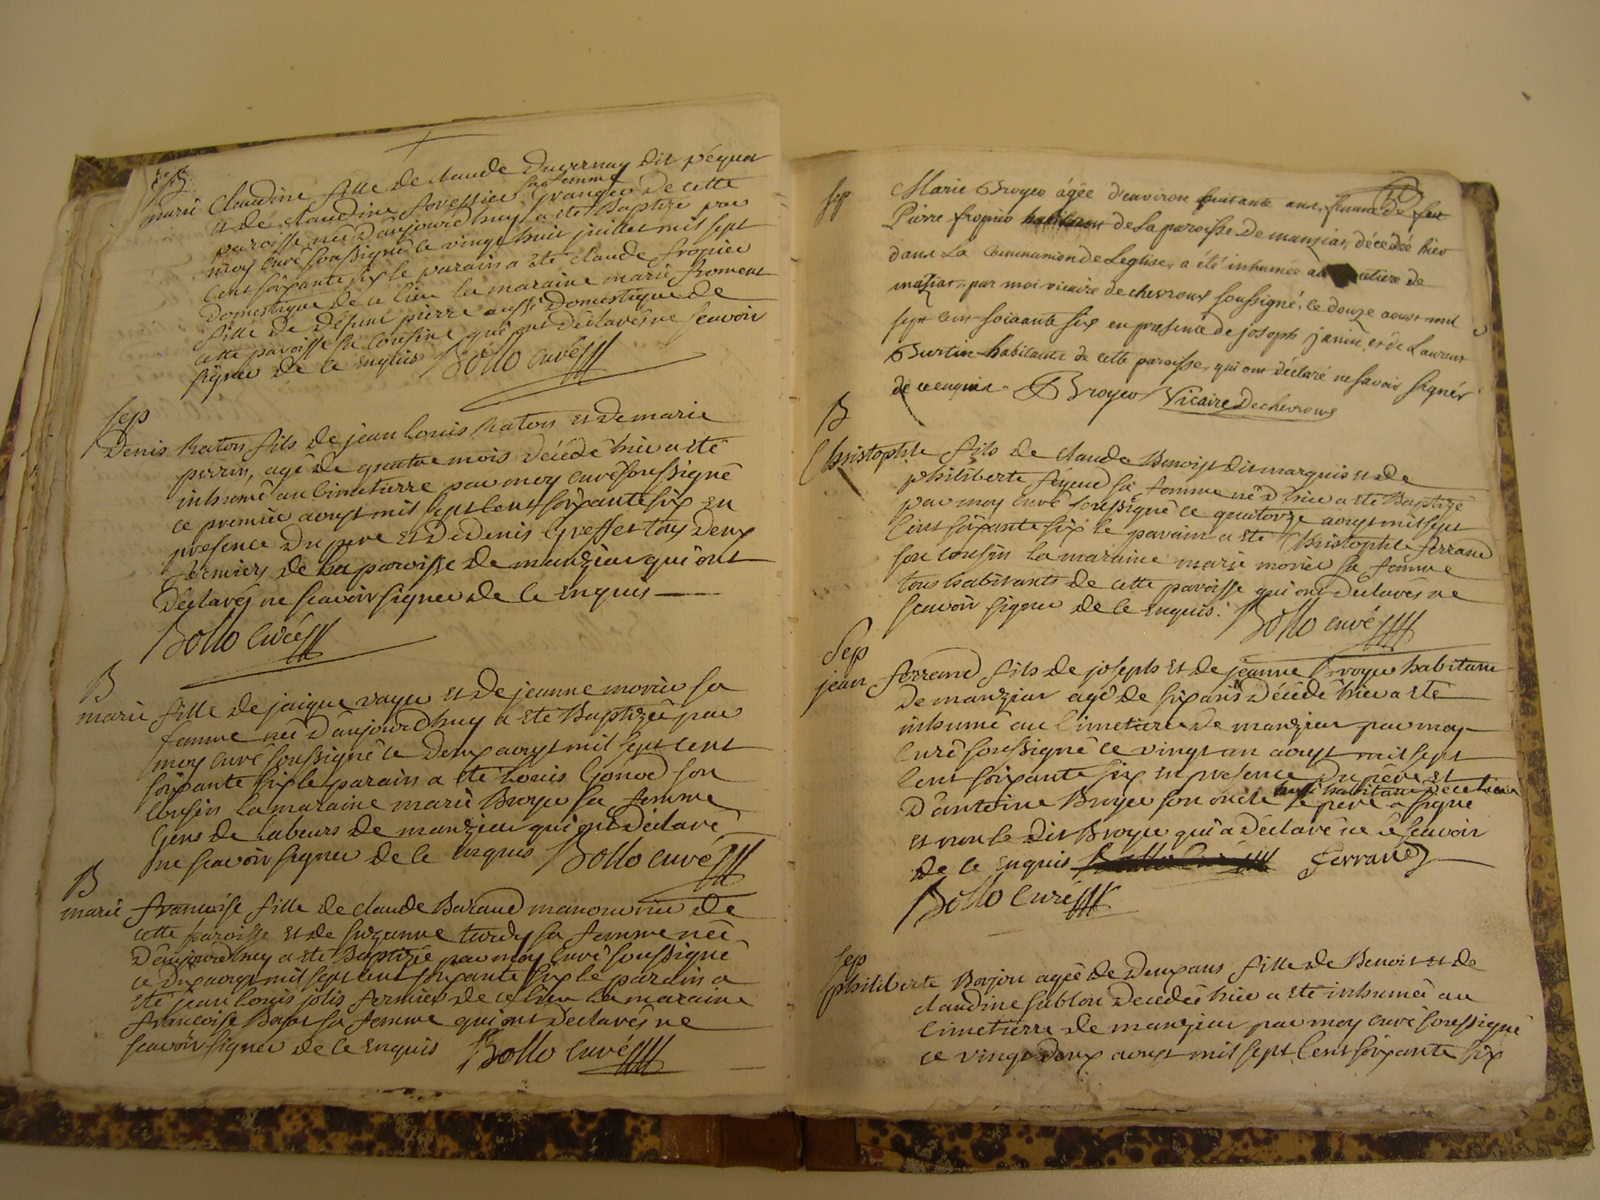 B
marie Claudine fille de claude Duvernay dit péquet
et de claudine sa femme grangers de cette
paroisse née d'aujourd'huy a eté Baptizé par
moy Curé soussigné le vingt huit juillet mil sept
Cent soixante six le parain a eté claude fropier
Domestique de ce lieu la maraine marie froment
fille de Défunt pierre aussi Domestique de
cette paroisse sa cousine qui ont déclarés ne scavoir
signer de ce Enquis Bollo Curé
sep
Denis Raton fils de jean Louis Raton et de marie
perrin, agé de quatre mois décédé hier a eté
inhumé au Cimetierre par moy curé soussigné
ce premier aoust mil sept cent soixante six en
presence du pere et de denis greffet tous deux
fermiers de la paroisse de manziat qui ont
Déclarés ne scavoir signer de ce Enquis
Bollo Curé
B
marie fille de jaique et de jeanne morier sa
femme née d'aujourd'huy a eté Baptizée par
moy curé soussigné ce deux aoust mil sept cent
soixante six le parain a eté Louis Gonod son
Cousin la maraine marie Broyer sa femme
Gens de Labeurs de manziat qui ont déclaré
ne scavoir signer de ce enquis Bollo curé
B
marie françoise fille de claude manouvrier de
cette paroisse et de suzanne sa femme née
D'aujourd'huy a eté Baptizée par moy Curé soussigné
ce dix aoust mil sept cent soixante six le parain a
eté jean Louis jolis fermier de ce lieu La maraine
françoise sa femme qui ont déclarés ne
scavoir signer de ce enquis Bollo curé
sep
Marie Broyer âgée d'environ ans femme de feu
Pierre fropier de la paroisse de manziat, décédée hier
dans la communion de Leglise, a été inhumée au de
par moi vicaire de chevroux soussigné, ce douze aoust mil
sept cent soixante six en presence de joseph janin, et de Laurent
Burtin habitants de cette paroisse, qui ont déclaré ne savoir signer
de ce enquis Broyer Vicaire De chevroux
B
Christophle fils de claude Benoist dit marquis et de
philiberte sa femme né d'hier a eté Baptizé
par moy curé soussigné ce quatorze aoust mil sept
Cent soixante six le parain a eté Christophle ferrand
son cousin la maraine marie morier sa femme
tous habitants de cette paroisse qui ont déclarés ne
scavoir signer de ce Enquis. Bollo curé
Sep
jean ferrand fils de joseph et de jeanne Broyer habitant
De manziat agé de six ans décédé hier a eté
inhumé au Cimetierre de manziat par moy
Curé soussigné ce vingt un aoust mil sept
Cent soixante six en presence du père et
D'antoine Broyer son oncle habitant le père a signé
et non le dit Broyer qui a déclaré ne scavoir
de ce enquis ferrand
Bollo Curé
sep
philiberte Borjon agée de deux ans fille de Benoist et de
claudine sublon décédée hier a eté inhumée au
Cimetierre de manziat par moy curé soussigné
ce vingt deux aoust mil sept Cent soixante six